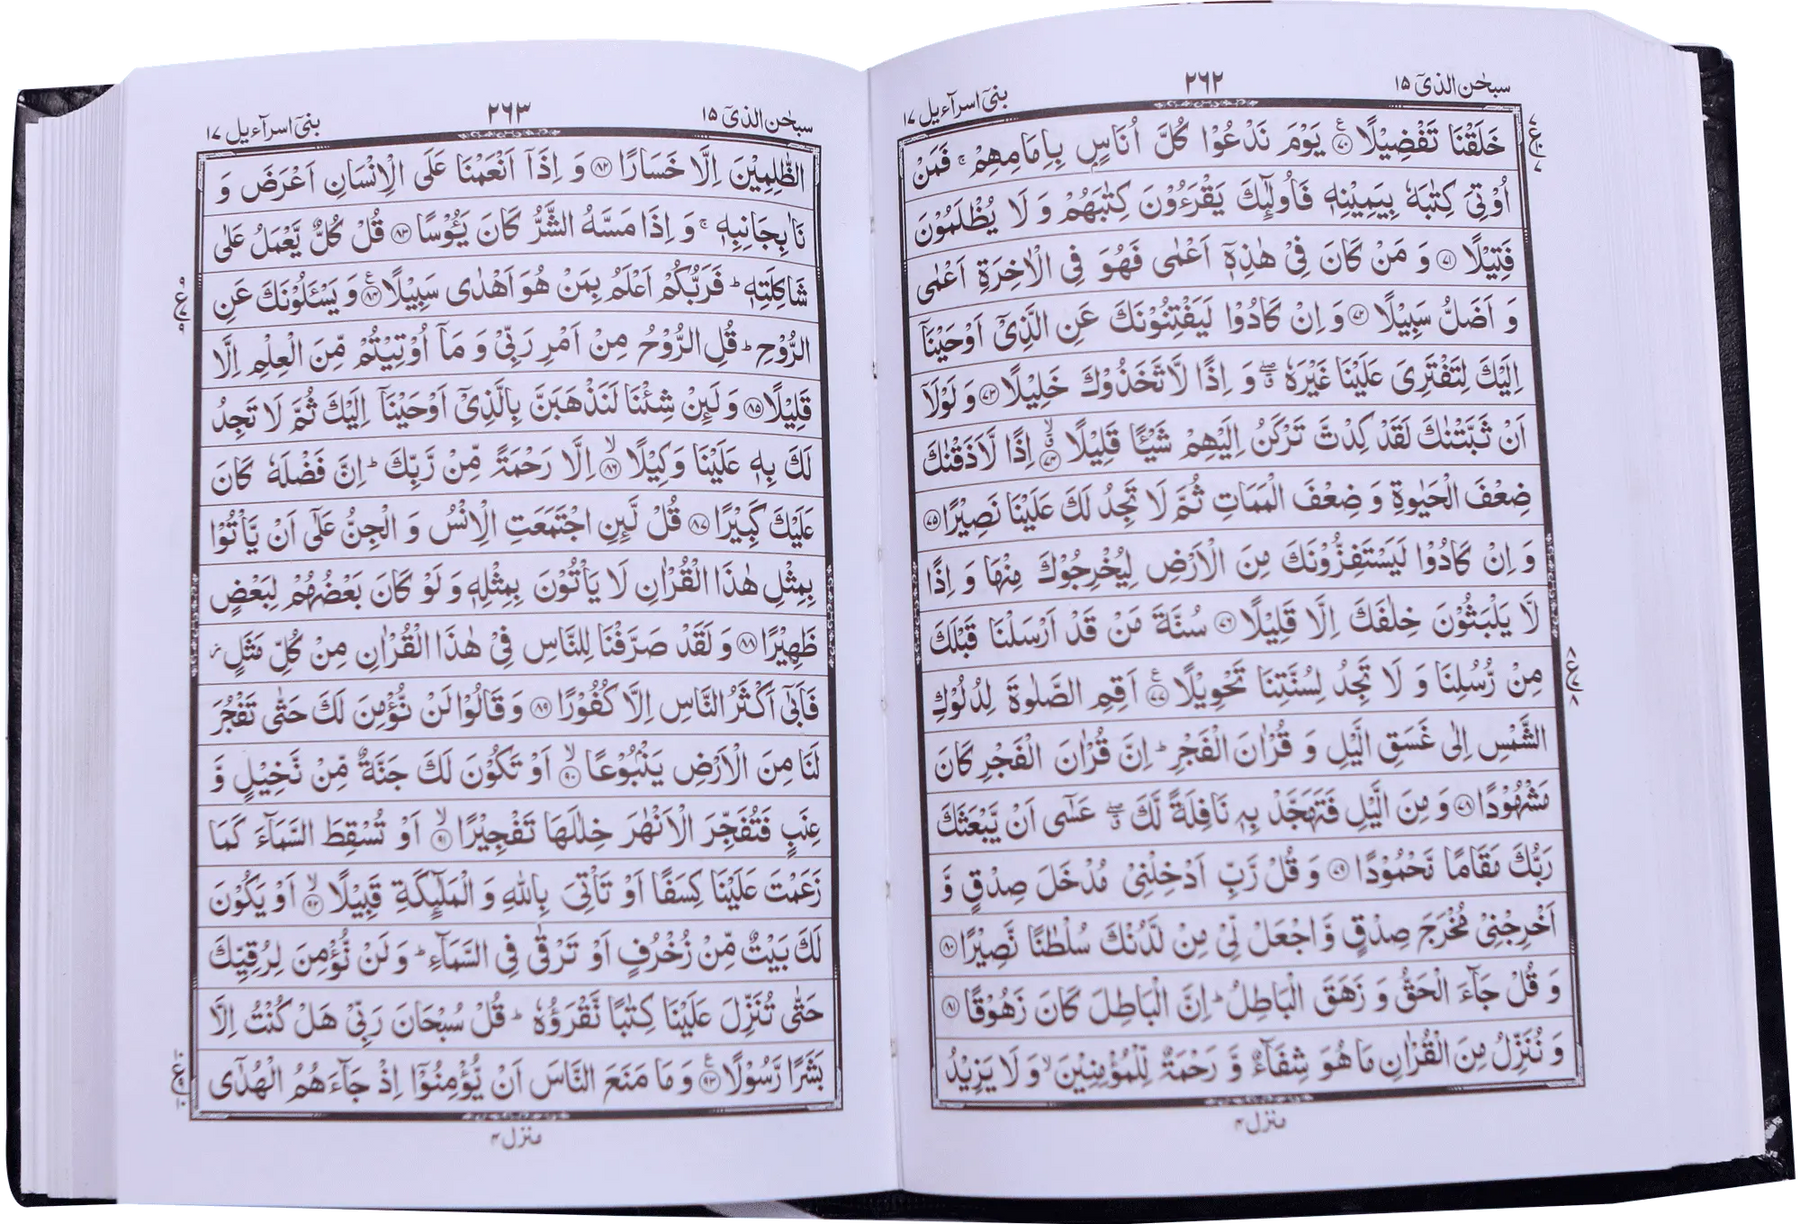 سبحٰن الذیۤ ۱۵
۲۶۲
بنیۤ اسرآءیل ۱۷
خَلَقْنَا تَفْضِیْلًا ۷۰ یَوْمَ نَدْعُوْا كُلَّ اُنَاسٍۭ بِاِمَامِهِمْ ۚ فَمَنْ
اُوْتِیَ كِتٰبَهٗ بِیَمِیْنِهٖ فَاُولٰٓئِكَ یَقْرَءُوْنَ كِتٰبَهُمْ وَ لَا یُظْلَمُوْنَ
فَتِیْلًا ۷۱ وَ مَنْ كَانَ فِیْ هٰذِهٖۤ اَعْمٰی فَهُوَ فِی الْاٰخِرَةِ اَعْمٰی
وَ اَضَلُّ سَبِیْلًا ۷۲ وَ اِنْ كَادُوْا لَیَفْتِنُوْنَكَ عَنِ الَّذِیْۤ اَوْحَیْنَاۤ
اِلَیْكَ لِتَفْتَرِیَ عَلَیْنَا غَیْرَهٗ ۖۗ وَ اِذًا لَّاتَّخَذُوْكَ خَلِیْلًا ۷۳ وَ لَوْلَاۤ
اَنْ ثَبَّتْنٰكَ لَقَدْ كِدْتَّ تَرْكَنُ اِلَیْهِمْ شَیْـًٔا قَلِیْلًا ۷۴ اِذًا لَّاَذَقْنٰكَ
ضِعْفَ الْحَیٰوةِ وَ ضِعْفَ الْمَمَاتِ ثُمَّ لَا تَجِدُ لَكَ عَلَیْنَا نَصِیْرًا ۷۵
وَ اِنْ كَادُوْا لَیَسْتَفِزُّوْنَكَ مِنَ الْاَرْضِ لِیُخْرِجُوْكَ مِنْهَا وَ اِذًا
لَّا یَلْبَثُوْنَ خِلٰفَكَ اِلَّا قَلِیْلًا ۷۶ سُنَّةَ مَنْ قَدْ اَرْسَلْنَا قَبْلَكَ
مِنْ رُّسُلِنَا وَ لَا تَجِدُ لِسُنَّتِنَا تَحْوِیْلًا ۷۷ اَقِمِ الصَّلٰوةَ لِدُلُوْكِ
الشَّمْسِ اِلٰی غَسَقِ الَّیْلِ وَ قُرْاٰنَ الْفَجْرِ ؕ اِنَّ قُرْاٰنَ الْفَجْرِ كَانَ
مَشْهُوْدًا ۷۸ وَ مِنَ الَّیْلِ فَتَهَجَّدْ بِهٖ نَافِلَةً لَّكَ ۖۗ عَسٰۤی اَنْ یَّبْعَثَكَ
رَبُّكَ مَقَامًا مَّحْمُوْدًا ۷۹ وَ قُلْ رَّبِّ اَدْخِلْنِیْ مُدْخَلَ صِدْقٍ وَّ
اَخْرِجْنِیْ مُخْرَجَ صِدْقٍ وَّ اجْعَلْ لِّیْ مِنْ لَّدُنْكَ سُلْطٰنًا نَّصِیْرًا ۸۰
وَ قُلْ جَآءَ الْحَقُّ وَ زَهَقَ الْبَاطِلُ ؕ اِنَّ الْبَاطِلَ كَانَ زَهُوْقًا ۸۱
وَ نُنَزِّلُ مِنَ الْقُرْاٰنِ مَا هُوَ شِفَآءٌ وَّ رَحْمَةٌ لِّلْمُؤْمِنِیْنَ ۙ وَ لَا یَزِیْدُ
منزل ۴
سبحٰن الذیۤ ۱۵
۲۶۳
بنیۤ اسرآءیل ۱۷
الظّٰلِمِیْنَ اِلَّا خَسَارًا ۸۲ وَ اِذَاۤ اَنْعَمْنَا عَلَی الْاِنْسَانِ اَعْرَضَ وَ
نَاٰ بِجَانِبِهٖ ۚ وَ اِذَا مَسَّهُ الشَّرُّ كَانَ یَـُٔوْسًا ۸۳ قُلْ كُلٌّ یَّعْمَلُ عَلٰی
شَاكِلَتِهٖ ؕ فَرَبُّكُمْ اَعْلَمُ بِمَنْ هُوَ اَهْدٰی سَبِیْلًا ۸۴ وَ یَسْـَٔلُوْنَكَ عَنِ
الرُّوْحِ ؕ قُلِ الرُّوْحُ مِنْ اَمْرِ رَبِّیْ وَ مَاۤ اُوْتِیْتُمْ مِّنَ الْعِلْمِ اِلَّا
قَلِیْلًا ۸۵ وَ لَىِٕنْ شِئْنَا لَنَذْهَبَنَّ بِالَّذِیْۤ اَوْحَیْنَاۤ اِلَیْكَ ثُمَّ لَا تَجِدُ
لَكَ بِهٖ عَلَیْنَا وَكِیْلًا ۸۶ اِلَّا رَحْمَةً مِّنْ رَّبِّكَ ؕ اِنَّ فَضْلَهٗ كَانَ
عَلَیْكَ كَبِیْرًا ۸۷ قُلْ لَّىِٕنِ اجْتَمَعَتِ الْاِنْسُ وَ الْجِنُّ عَلٰۤی اَنْ یَّاْتُوْا
بِمِثْلِ هٰذَا الْقُرْاٰنِ لَا یَاْتُوْنَ بِمِثْلِهٖ وَ لَوْ كَانَ بَعْضُهُمْ لِبَعْضٍ
ظَهِیْرًا ۸۸ وَ لَقَدْ صَرَّفْنَا لِلنَّاسِ فِیْ هٰذَا الْقُرْاٰنِ مِنْ كُلِّ مَثَلٍ ؗ
فَاَبٰۤی اَكْثَرُ النَّاسِ اِلَّا كُفُوْرًا ۸۹ وَ قَالُوْا لَنْ نُّؤْمِنَ لَكَ حَتّٰی تَفْجُرَ
لَنَا مِنَ الْاَرْضِ یَنْۢبُوْعًا ۹۰ اَوْ تَكُوْنَ لَكَ جَنَّةٌ مِّنْ نَّخِیْلٍ وَّ
عِنَبٍ فَتُفَجِّرَ الْاَنْهٰرَ خِلٰلَهَا تَفْجِیْرًا ۹۱ اَوْ تُسْقِطَ السَّمَآءَ كَمَا
زَعَمْتَ عَلَیْنَا كِسَفًا اَوْ تَاْتِیَ بِاللّٰهِ وَ الْمَلٰٓىِٕكَةِ قَبِیْلًا ۹۲ اَوْ یَكُوْنَ
لَكَ بَیْتٌ مِّنْ زُخْرُفٍ اَوْ تَرْقٰی فِی السَّمَآءِ ؕ وَ لَنْ نُّؤْمِنَ لِرُقِیِّكَ
حَتّٰی تُنَزِّلَ عَلَیْنَا كِتٰبًا نَّقْرَؤُهٗ ؕ قُلْ سُبْحَانَ رَبِّیْ هَلْ كُنْتُ اِلَّا
بَشَرًا رَّسُوْلًا ۹۳ وَ مَا مَنَعَ النَّاسَ اَنْ یُّؤْمِنُوْۤا اِذْ جَآءَهُمُ الْهُدٰۤی
منزل ۴